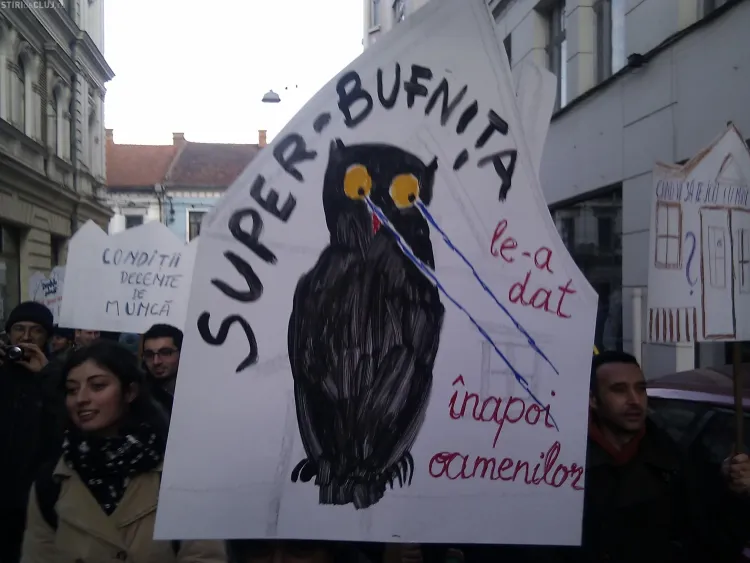 STIRIDECLUJ.RO
SUPER-BUFNIȚA
le-a
dat
înapoi
oamenilor
CONDIȚII
DECENTE
DE
MUNCĂ
?